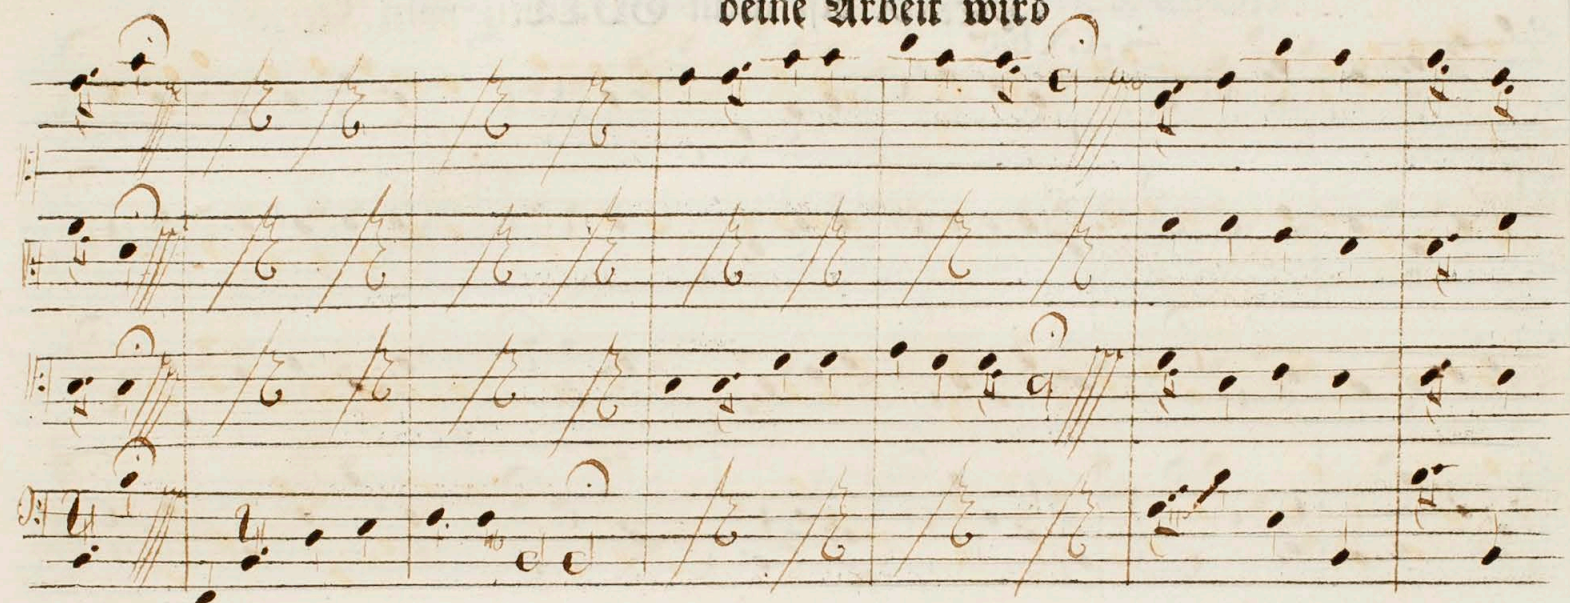 deine Arbeit wird